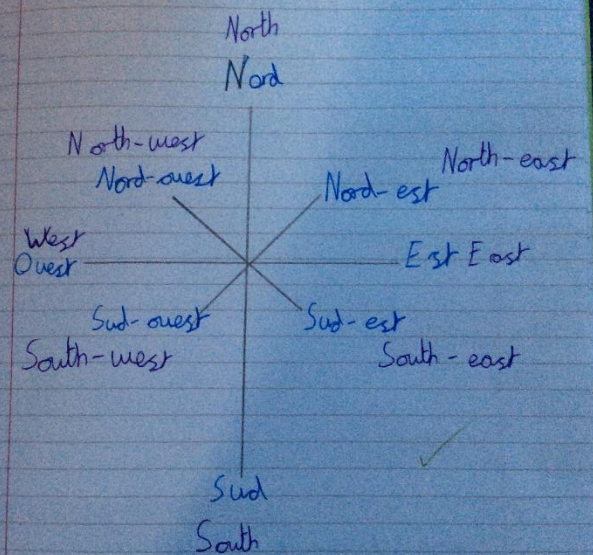 North
Nord
North-west
Nord-ouest
North-east
Nord-est
West
Ouest
Est East
Sud-ouest
South-west
Sud-est
South-east
Sud
South